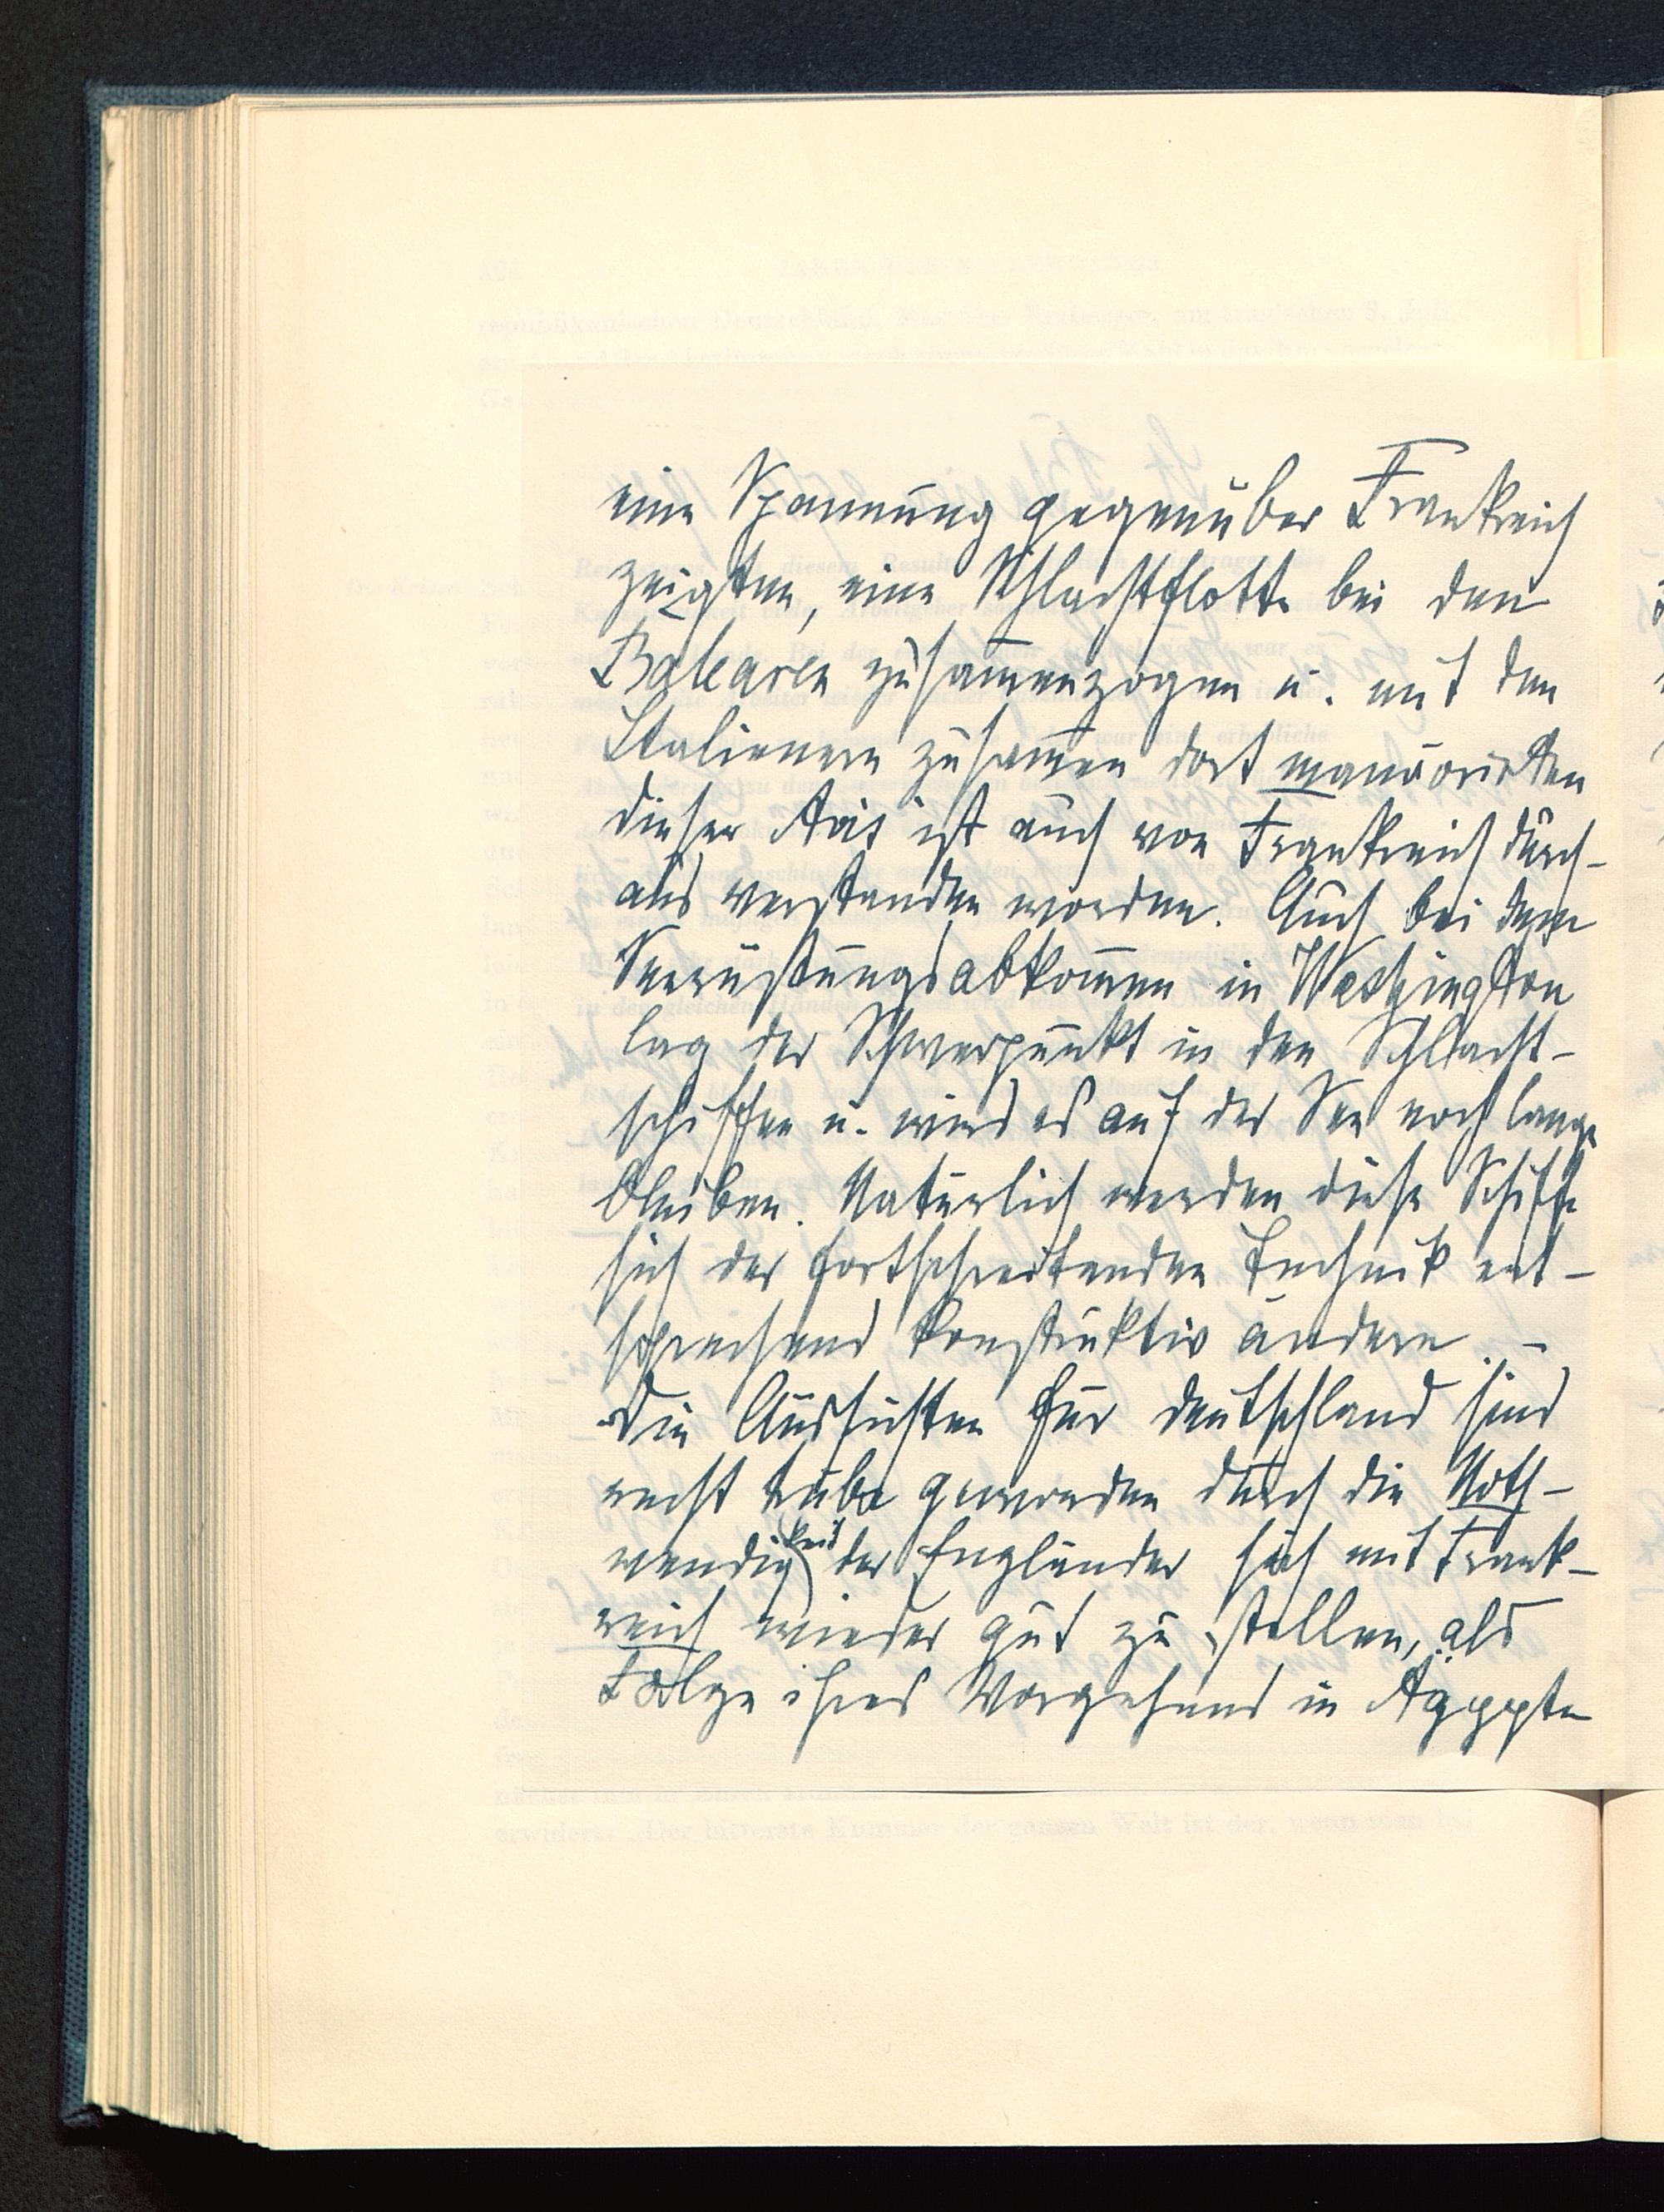 eine Spannung gegenüber Frankreich
zeigten, eine Schlachtflotte bei den
Balearen zusammenzogen u. mit den
Italienern zusammen dort manövrirten
dieser Avis ist auch von Frankreich durch-
aus verstanden worden. Auch bei dem
Seerüstungsabkommen in Washington
lag der Schwerpunkt in den Schlacht-
schiffen u. wird es auf der See noch lange
bleiben. Natürlich werden diese Schiffe
sich der fortschreitenden Technik ent-
sprechend konstruktiv ändern. -
Die Aussichten für Deutschland sind
recht trübe geworden durch die Noth-
wendigkeit der Engländer sich mit Frank-
reich wieder gut zu stellen, als
Folge ihres Vorgehens in Ägypten